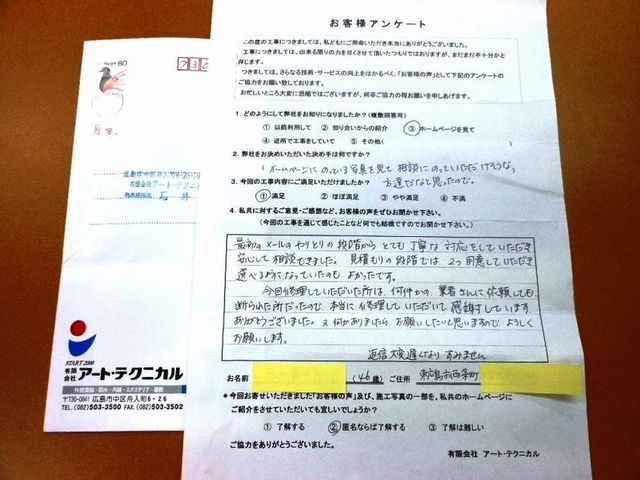 お客様アンケート
この度の工事につきましては、私どもにご用命いただき本当にありがとうございました。
工事につきましては、出来る限りの力を尽くさせて頂いたつもりではおりますが、まだまだ不十分かと
存じます。
つきましては、さらなる技術・サービスの向上をはかるべく、「お客様の声」として下記のアンケートの
ご協力をお願い致しております。
お忙しいところ大変に恐縮ではございますが、何卒ご協力の程お願いを申しあげます。
1. どのようにして弊社をお知りになりましたか？(複数回答可)
① 以前利用して ② 知り合いからの紹介 ③ ホームページを見て
④ 近所で工事をしていて ⑤ その他(
2. 弊社をお決めいただいた決め手は何ですか？
「ホームページにのっている写真を見て相談にのっていただけそうな
方達だなと思ったので。
3. 今回の工事内容にご満足いただけましたか？
① 満足 ② ほぼ満足 ③ やや満足 ④ 不満
4. 私共に対するご意見・ご感想など、お客様の声をぜひお聞かせ下さい。
(今回の工事を通じて感じたことなど何でも結構ですのでお聞かせ下さい。)
最初のメールのやりとりの段階から とても丁寧な対応をしていただき
安心して相談できました。見積もりの段階では、2つ用意していただき
選べるようになっていたのも よかったです。
今回修理していただいた所は、何件かの業者さんに依頼しても
断られた所だったので、本当に修理していただいて感謝しています。
ありがとうございました。又何かありましたらお願いしたいと思いますので、よろしく
お願いします。
返信大変遅くなり すみません
お名前 (46歳) ご住所 東広島市西条町
*今回お寄せいただきました「お客様の声」及び、施工写真の一部を、私共のホームページに
ご紹介をさせていただいても宜しいでしょうか？
① 了解する ② 匿名ならば了解する ③ 了解は難しい
ご協力をありがとうございました。
有限会社 アート・テクニカル
80
広島市中区舟入町6-26
有限会社アート・テクニ
START2000
有限会社 アート・テクニカル
〒730-0841 広島市中区舟入町6-26
TEL.(082)503-3500 FAX.(082)503-3502